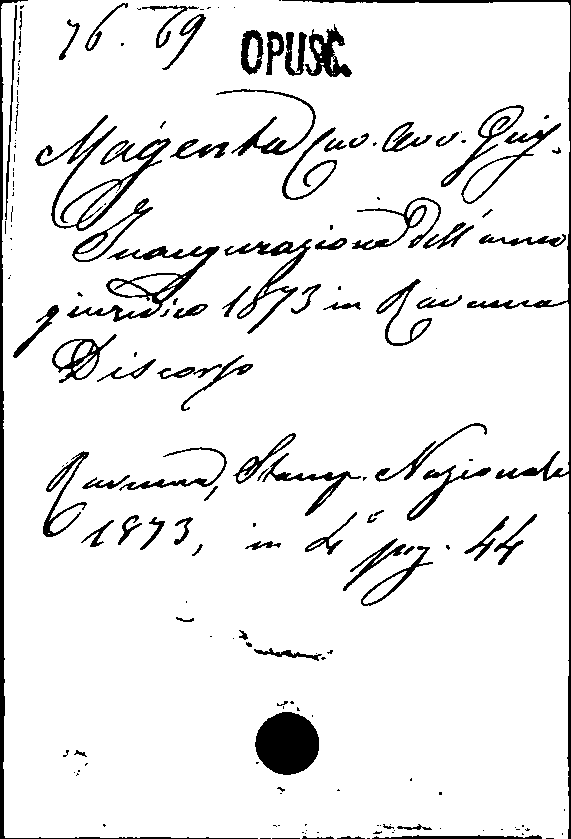 76. 69 OPUSC.
Magenta Cav. Avv. Luig.
Inaugurazione dell'anno
giuridico 1873 in Ravenna
Discorso
Ravenna, Stamp. Nazionale
1873, in 4° pag. 44